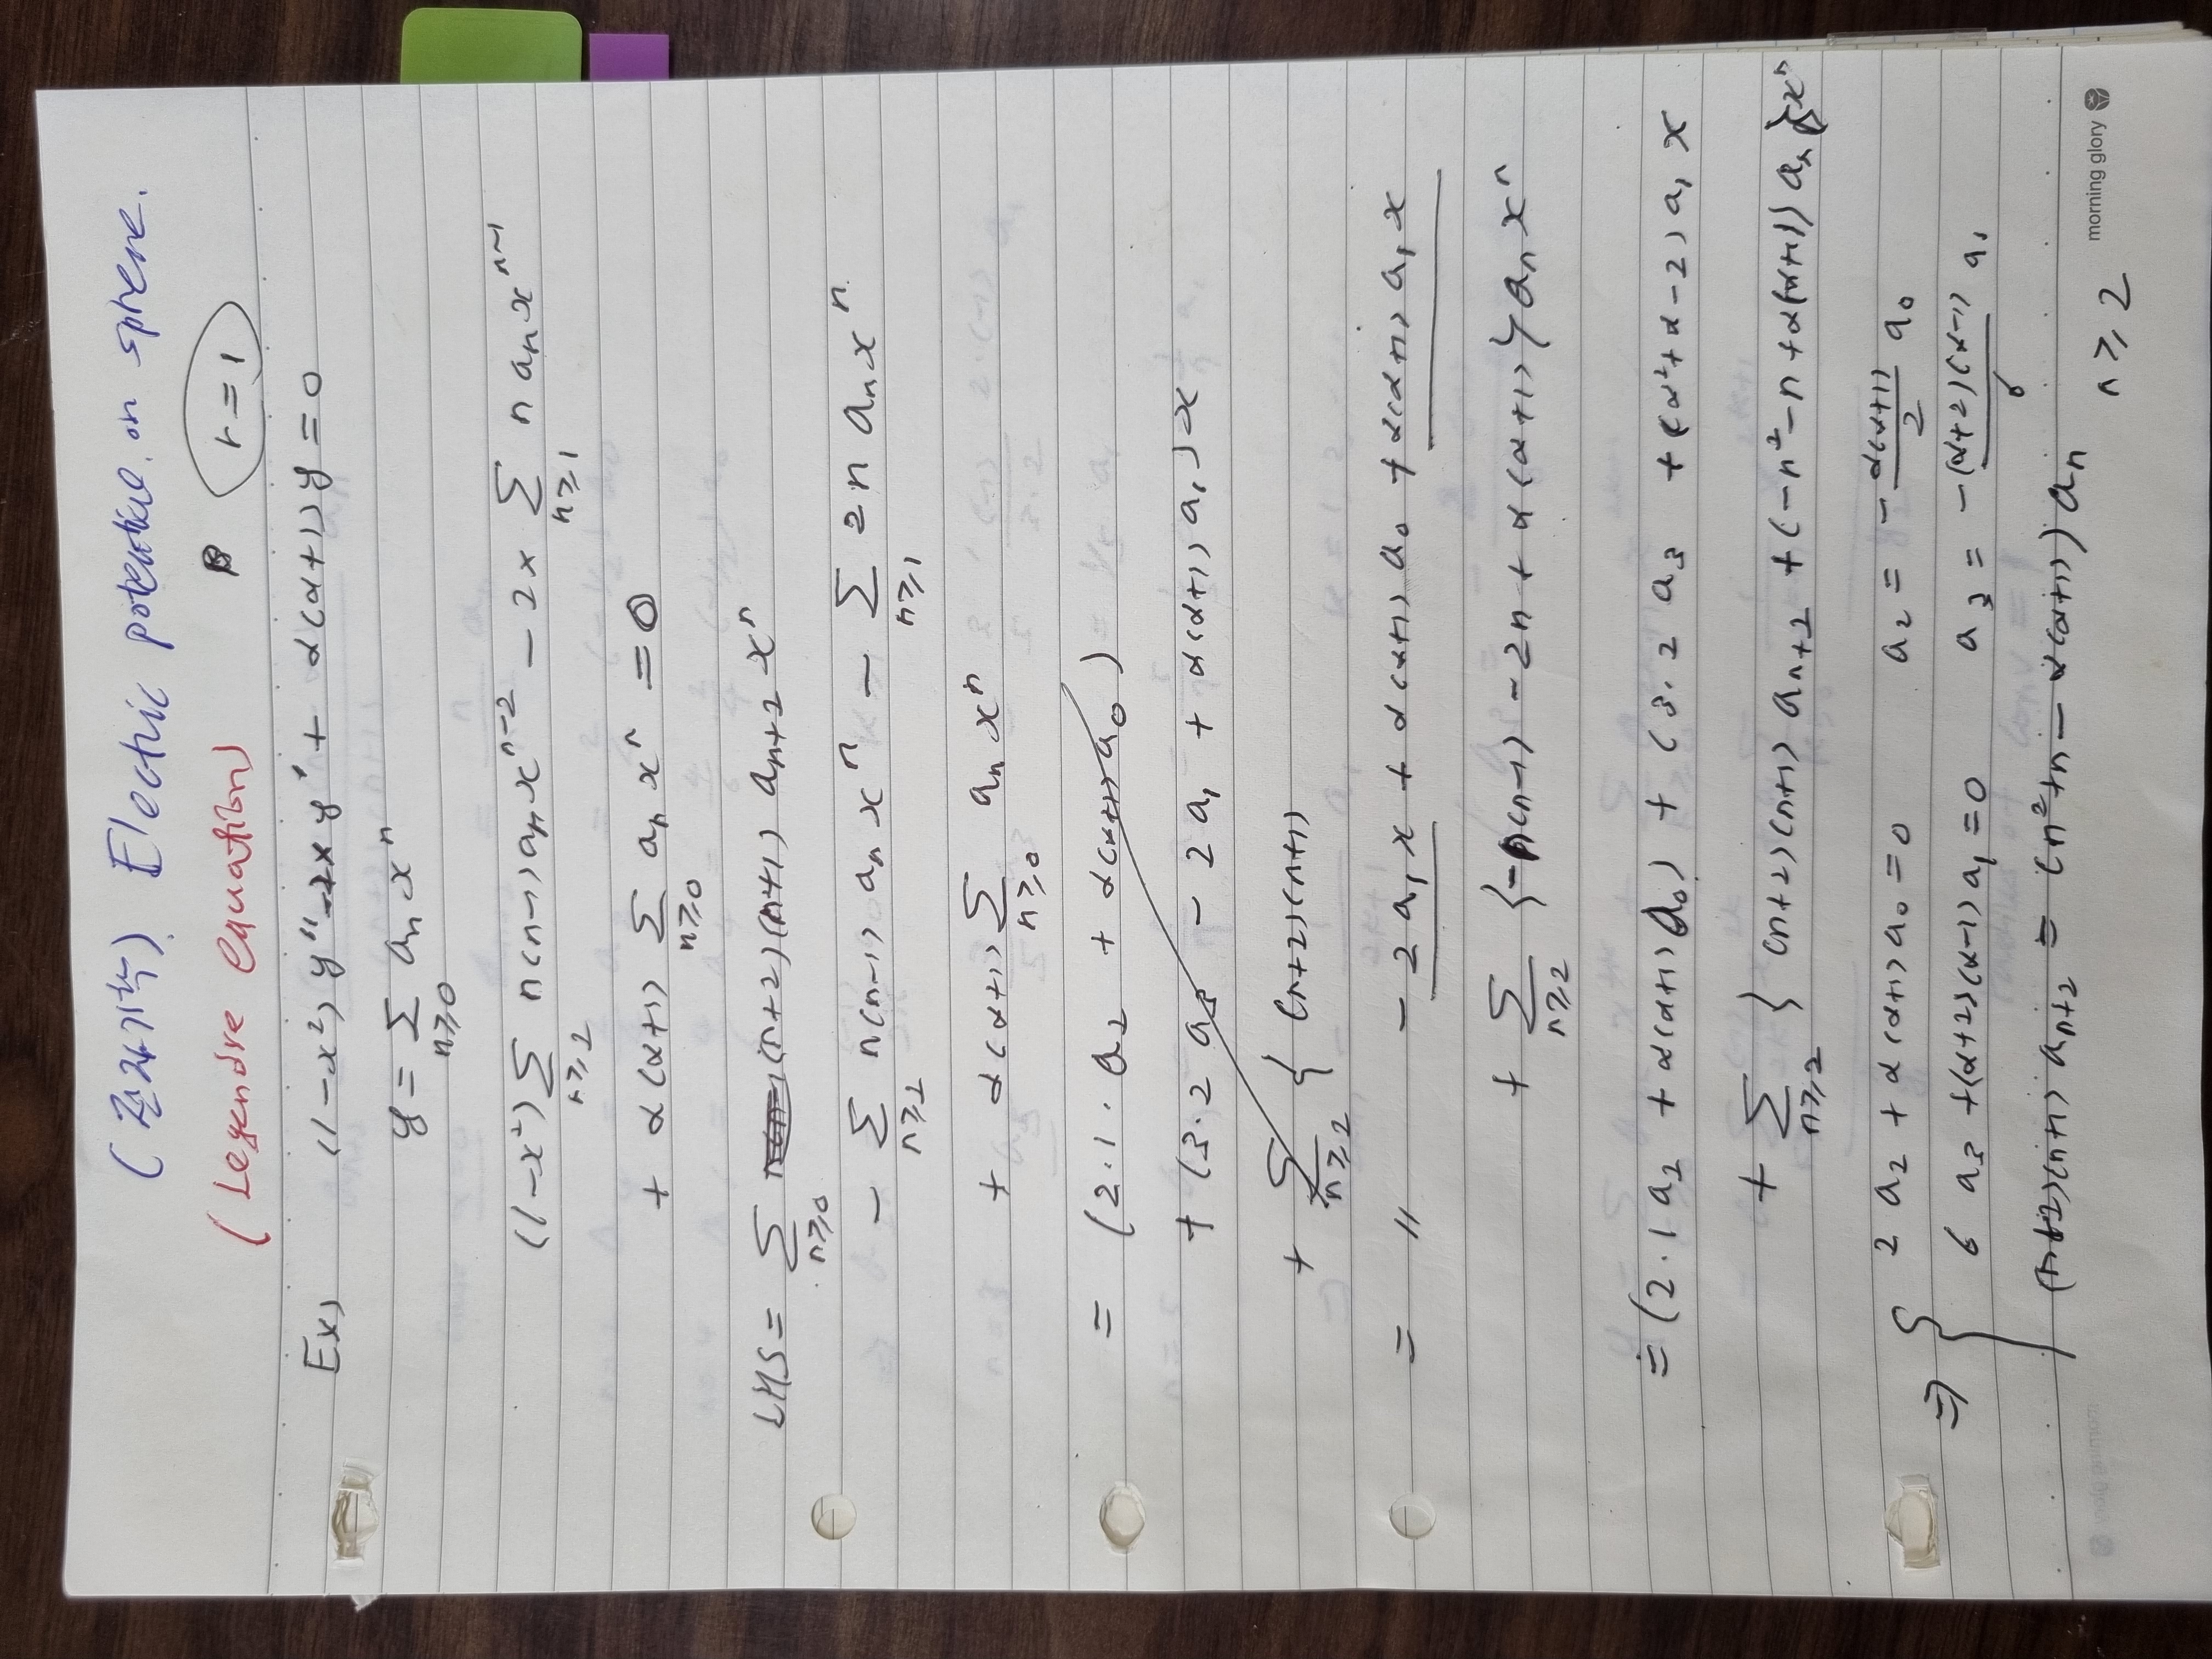 (전자기학). Electric potential. on sphere.
(Legendre equation) r=1
Ex) (1-x²) y" -2x y' + α(α+1) y = 0
y = Σ_{n≥0} aₙ xⁿ
(1-x²) Σ_{n≥2} n(n-1) aₙ x^{n-2} - 2x Σ_{n≥1} n aₙ x^{n-1}
+ α(α+1) Σ_{n≥0} aₙ xⁿ = 0
LHS = Σ_{n≥0} (n+2)(n+1) a_{n+2} xⁿ
- Σ_{n≥2} n(n-1) aₙ xⁿ - Σ_{n≥1} 2n aₙ xⁿ
+ α(α+1) Σ_{n≥0} aₙ xⁿ
= (2·1·a₂ + α(α+1) a₀)
+ (3·2 a₃ - 2a₁ + α(α+1) a₁) x
+ Σ_{n≥2} { (n+2)(n+1)
= 〃 - 2a₁x + α(α+1) a₀ + α(α+1) a₁x
+ Σ_{n≥2} {-n(n-1) - 2n + α(α+1)} aₙ xⁿ
= (2·1 a₂ + α(α+1) a₀) + (3·2 a₃ + (α²+α-2) a₁ x
+ Σ_{n≥2} { (n+2)(n+1) a_{n+2} + (-n²-n+α(α+1)) aₙ } xⁿ
⇒ { 2 a₂ + α(α+1) a₀ = 0 a₂ = - α(α+1)/2 a₀
6 a₃ + (α+2)(α-1) a₁ = 0 a₃ = -(α+2)(α-1)/6 a₁
(n+2)(n+1) a_{n+2} = (n²+n - α(α+1)) aₙ
n≥2
morning glory